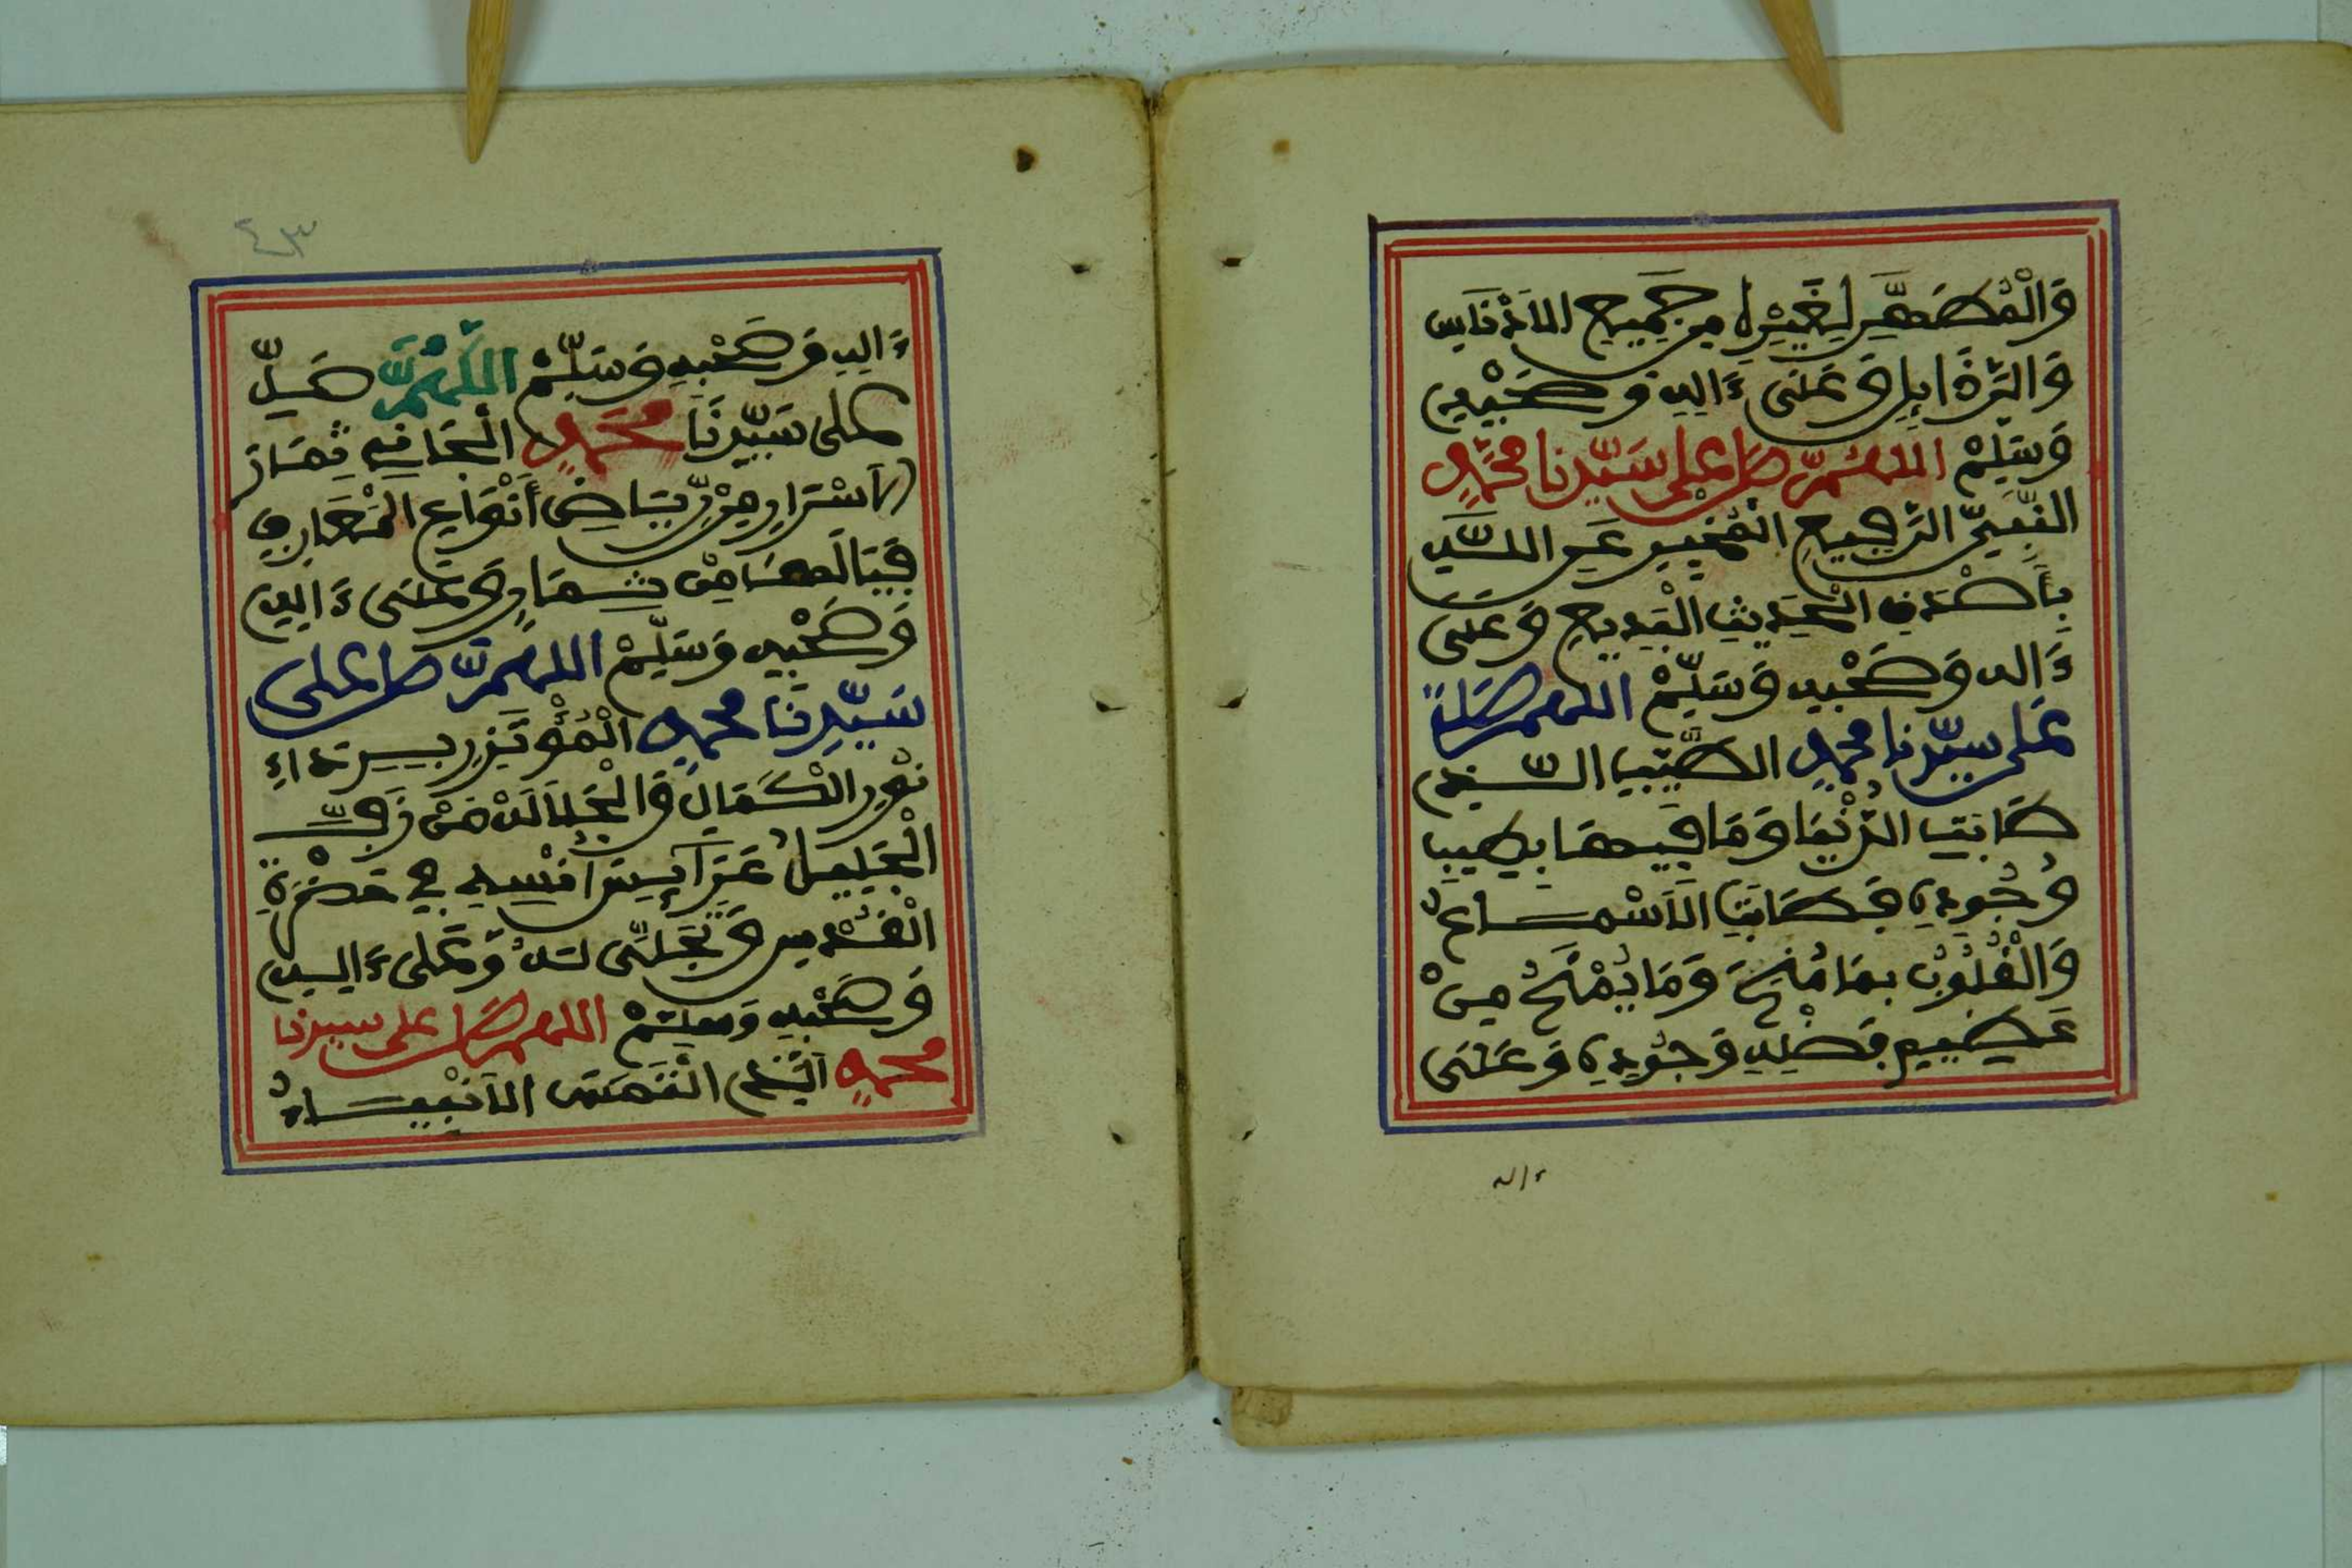 وَالْمُطَهِّرِ لِغَيْرِهِ مِن جَمِيعِ الأَدْنَاسِ
وَالرَّذَائِلِ وَعَلَى ءَالِهِ وَصَحْبِهِ
وَسَلِّمْ اللهُمَّ صَلِّ عَلَى سَيِّدِنَا مُحَمَّدٍ
النَّبِيِّ الرَّجِيحِ الْمُخْبِرِ عَنِ اللَّهِ
بِأَصْدَقِ الْحَدِيثِ الْبَدِيعِ وَعَلَى
ءَالِهِ وَصَحْبِهِ وَسَلِّمْ اللهم صَلِّ
عَلَى سَيِّدِنَا مُحَمَّدٍ الطَّيِّبِ الَّذِي
طَابَتِ الدُّنْيَا وَمَا فِيهَا بِطِيبِ
وُجُودِهِ فَطَابَتِ الأَسْمَاعُ
وَالْقُلُوبُ بِمَا مُنِحَ وَمَا يُمْنَحُ مِنْ
عَظِيمِ فَضْلِهِ وَجُودِهِ وَعَلَى
ءاله
٤٣
ءَالِهِ وَصَحْبِهِ وَسَلِّمْ اللَّهُمَّ صَلِّ
عَلَى سَيِّدِنَا مُحَمَّدٍ الْجَانِي ثِمَارَ
الأَسْرَارِ مِنْ رِيَاضِ أَنْوَاعِ الْمَعَارِفِ
فَيَا لَهَا مِنْ ثِمَارٍ وَعَلَى ءَالِهِ
وَصَحْبِهِ وَسَلِّمْ اللهم صَلِّ عَلَى
سَيِّدِنَا مُحَمَّدٍ الْمُؤْتَزِرِ بِرِدَاءِ
نُورِ الْكَمَالِ وَالْجَلَالَةِ مَنْ زَجَّ
الْجَلِيلُ عَزَّ
الْقُدْسِ وَتَجَلَّى لَهُ وَعَلَى ءَالِهِ
وَصَحْبِهِ وَسَلِّمْ اللهم صَلِّ عَلَى سَيِّدِنَا
مُحَمَّدٍ الَّذِي الْتَمَسَ الأَنْبِيَاءُ